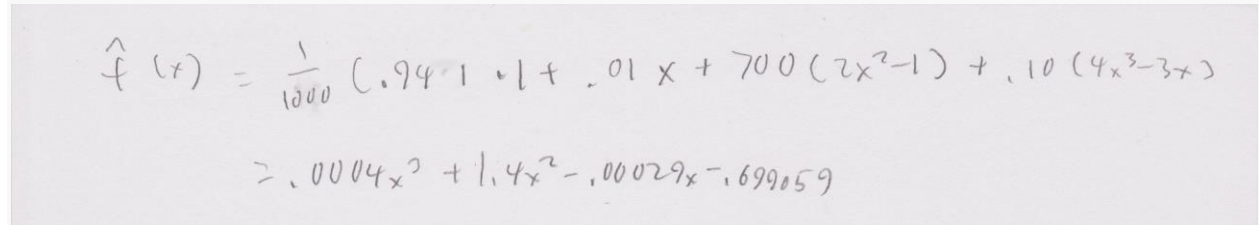 f̂ (x) = 1/1000 (.941 · 1 + .01 x + 700 (2x²-1) + .10 (4x³-3x)
= .0004x³ + 1.4x² - .00029x - .699059